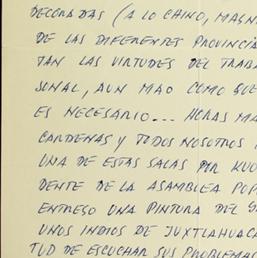 DECORADAS (A LO CHINO, MAGN
DE LAS DIFERENTES PROVINCIA
TAN LAS VIRTUDES DEL TRABA
SONAL, AUN MAO COMO GUE
ES NECESARIO... HORAS MA
CARDENAS Y TODOS NOSOTROS
UNA DE ESTAS SALAS POR KUO
DENTE DE LA ASAMBLEA POP
ENTREGO UNA PINTURA DEL S
UNOS INDIOS DE JUXTLAHUACA
TUD DE ESCUCHAR SUS PROBLEMAS